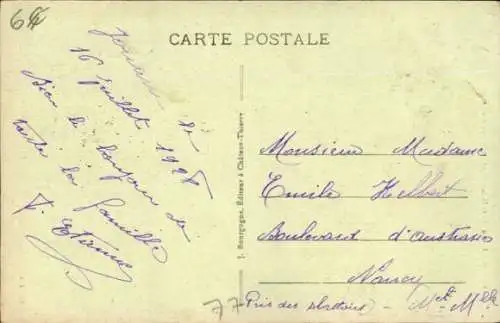 6
CARTE POSTALE
le
16 juillet 1928
Bien le bonjour de
toute la famille
F. Etienne
J. Bourgogne, Éditeur à Château-Thierry
Monsieur Madame
Emile Helbert
Boulevard d'australie
Nancy
77 Pris des M